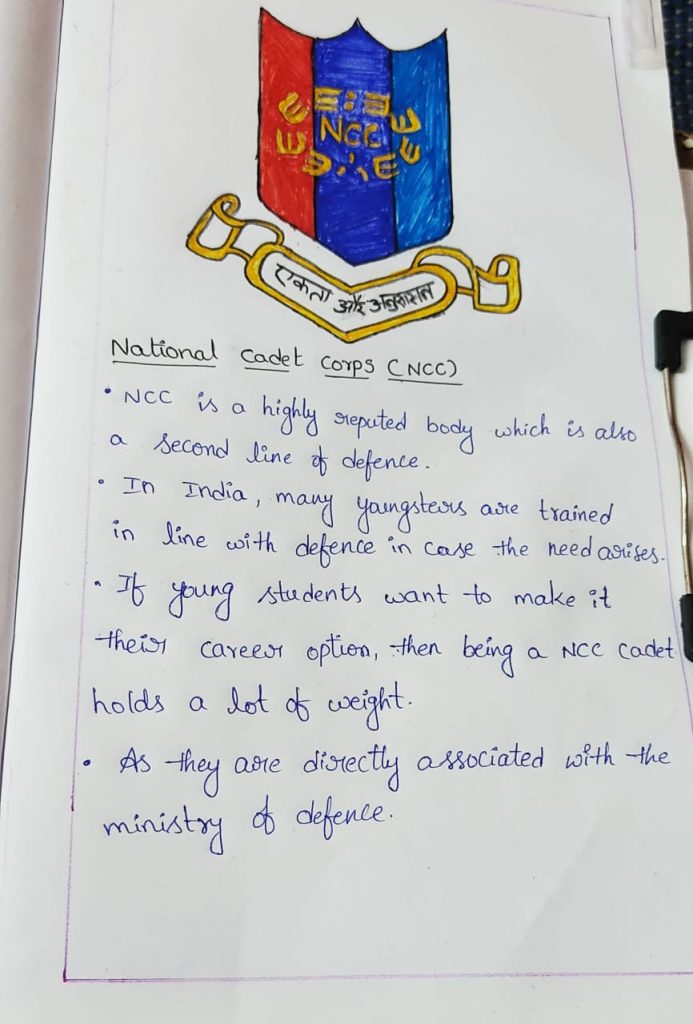 NCC
एकता और अनुशासन
National Cadet Corps (NCC)
• NCC is a highly reputed body which is also
a second line of defence.
• In India, many youngsters are trained
in line with defence in case the need arises.
• If young students want to make it
their career option, then being a NCC cadet
holds a lot of weight.
• As they are directly associated with the
ministry of defence.